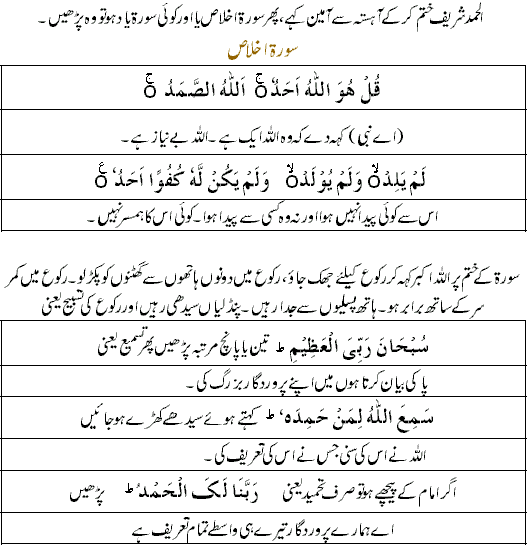 الحمد شریف ختم کر کے آہستہ سے آمین کہے، پھر سورۃ اخلاص یا اور کوئی سورۃ یاد ہو تو وہ پڑھیں۔
سورۃ اخلاص
قُلْ هُوَ اللّٰهُ اَحَدٌ ۚ اَللّٰهُ الصَّمَدُ ۚ
(اے نبی) کہہ دے کہ وہ اللہ ایک ہے۔ اللہ بے نیاز ہے۔
لَمْ يَلِدْ ۙ وَلَمْ يُوْلَدْ ۙ وَلَمْ يَكُنْ لَّهٗ كُفُوًا اَحَدٌ ۚ
اس سے کوئی پیدا نہیں ہوا اور نہ وہ کسی سے پیدا ہوا۔ کوئی اس کا ہمسر نہیں۔
سورۃ کے ختم پر اللہ اکبر کہہ کر رکوع کیلئے جھک جاؤ، رکوع میں دونوں ہاتھوں سے گھٹنوں کو پکڑ لو۔ رکوع میں کمر
سر کے ساتھ برابر ہو۔ ہاتھ پسلیوں سے جدا رہیں۔ پنڈلیاں سیدھی رہیں اور رکوع کی تسبیح یعنی
سُبْحَانَ رَبِّیَ الْعَظِیْمِ ط تین یا پانچ مرتبہ پڑھیں پھر تسمیع یعنی
پاکی بیان کرتا ہوں میں اپنے پروردگار بزرگ کی۔
سَمِعَ اللّٰهُ لِمَنْ حَمِدَه، ط کہتے ہوئے سیدھے کھڑے ہو جائیں
اللہ نے اس کی سنی جس نے اس کی تعریف کی۔
اگر امام کے پیچھے ہو تو صرف تحمید یعنی رَبَّنَا لَکَ الْحَمْدُ ط پڑھیں
اے ہمارے پروردگار تیرے ہی واسطے تمام تعریف ہے